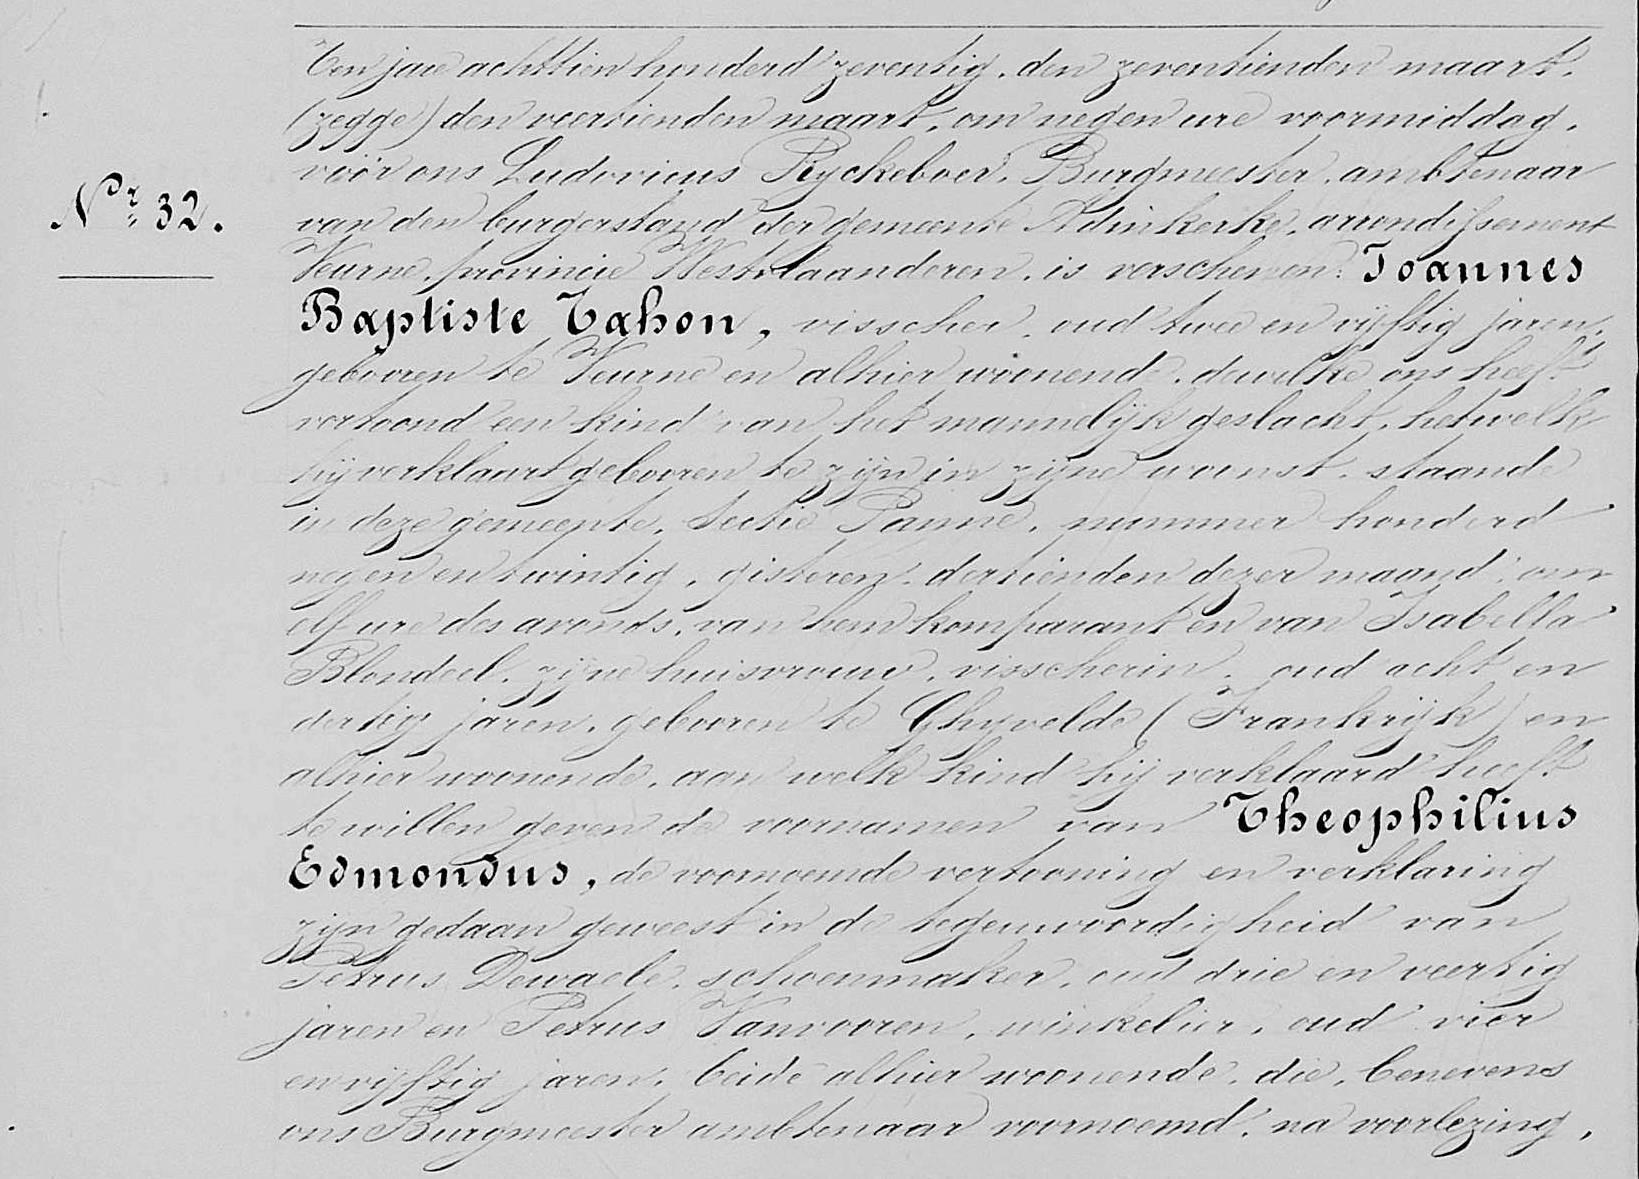 Ten jare achttien honderd zeventig, den zeventienden maart,
(zegge) den veertienden maart, om negen ure voormiddag,
vóór ons Ludovicus Ryckeboer, Burgmeester, ambtenaar
Nr 32.
van den burgerstand der gemeente Adinkerke, arrondissement
Veurne, provincie Westvlaanderen, is verschenen: Joannes
Baptiste Tahon, visscher, oud twee en vijftig jaren,
gebooren te Veurne en alhier woonende, dewelke ons heeft
vertoond een kind van het mannelijk geslacht, hetwelk
hij verklaart gebooren te zijn in zijne woonst, staande
in deze gemeente, sectie Panne, nummer honderd
negen en twintig, gisteren dertienden dezer maand, om
elf ure des avonds, van hem komparant en van Isabella
Blondeel, zijne huisvrouw, visscherin, oud acht en
dertig jaren, gebooren te Ghyvelde (Frankrijk) en
alhier woonende, aan welk kind hij verklaard heeft
te willen geven de voornamen van Theophilius
Edmondus, de voornoemde vertooning en verklaring
zijn gedaan geweest in de tegenwoordigheid van
Petrus Dewaele, schoenmaker, oud drie en veertig
jaren en Petrus Vanvooren, winkelier, oud vier
en vijftig jaren, beide alhier woonende, die, benevens
ons Burgmeester ambtenaar voornoemd, na voorlezing,